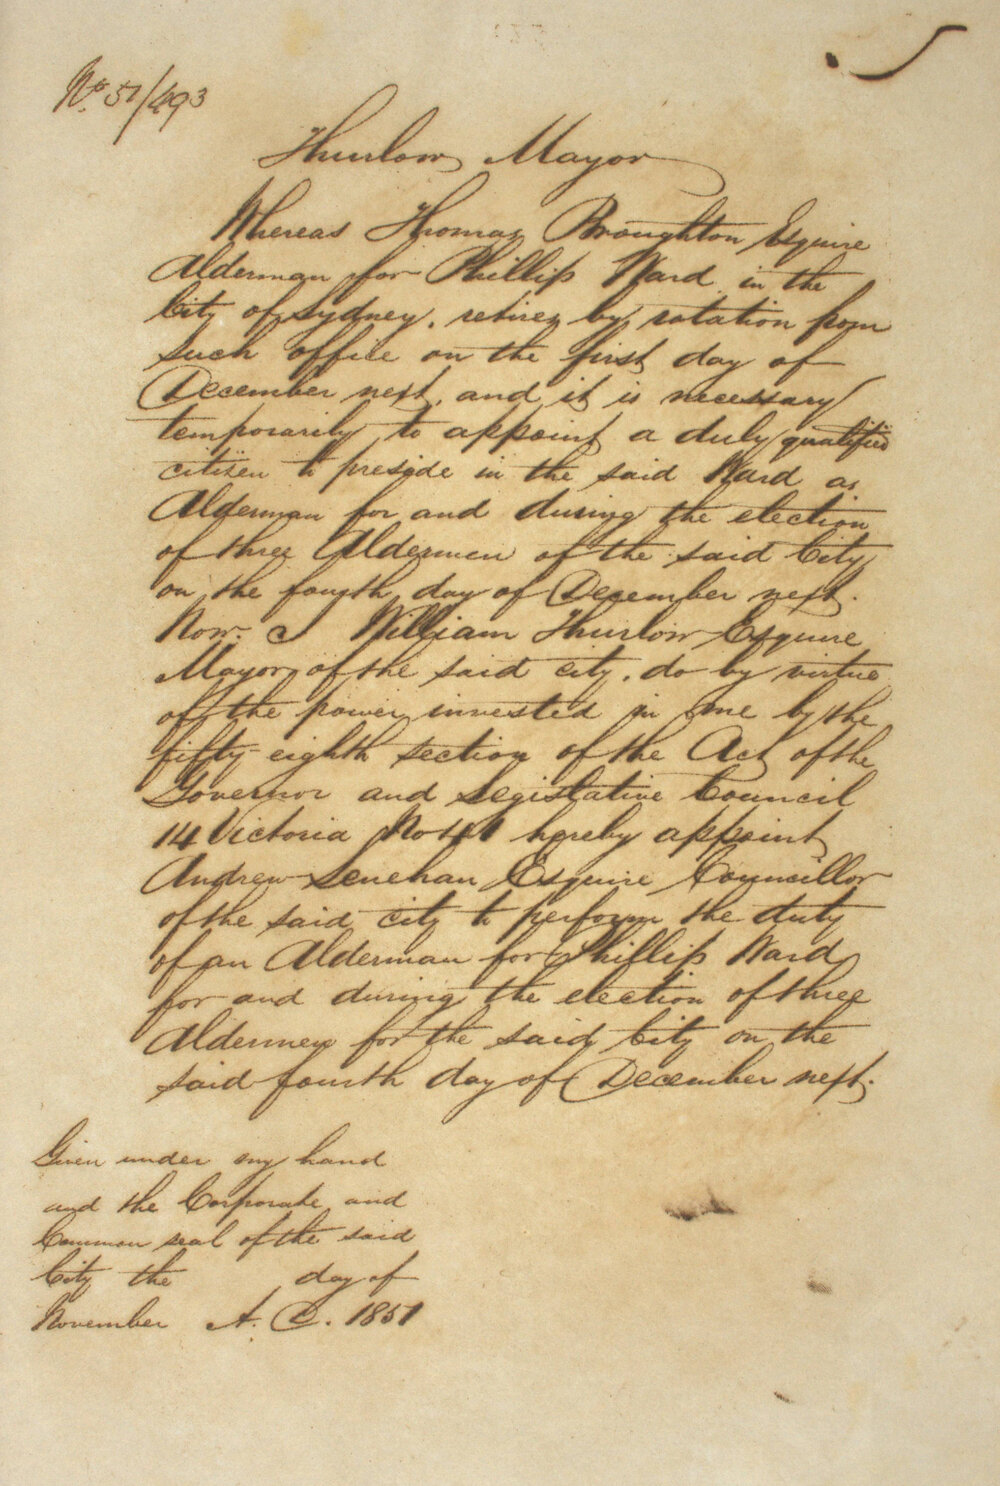 No 51/493
Thurlow Mayor
Whereas Thomas Broughton Esquire
Alderman for Phillip Ward in the
City of Sydney, retires by rotation from
such office on the first day of
December next, and it is necessary
temporarily to appoint a duly qualified
citizen to preside in the said Ward as
Alderman for and during the election
of three Aldermen of the said City
on the fourth day of December next.
Now. I William Thurlow Esquire
Mayor of the said city, do by virtue
of the power invested in me by the
fifty-eighth section of the Act of the
Governor and Legislative Council
14 Victoria No 41 hereby appoint
Andrew Lenehan Esquire Councillor
of the said city to perform the duty
of an Alderman for Phillip Ward
for and during the election of three
Aldermen for the said City on the
said fourth day of December next.
Given under my hand
and the Corporate and
Common seal of the said
City the day of
November A. D. 1851